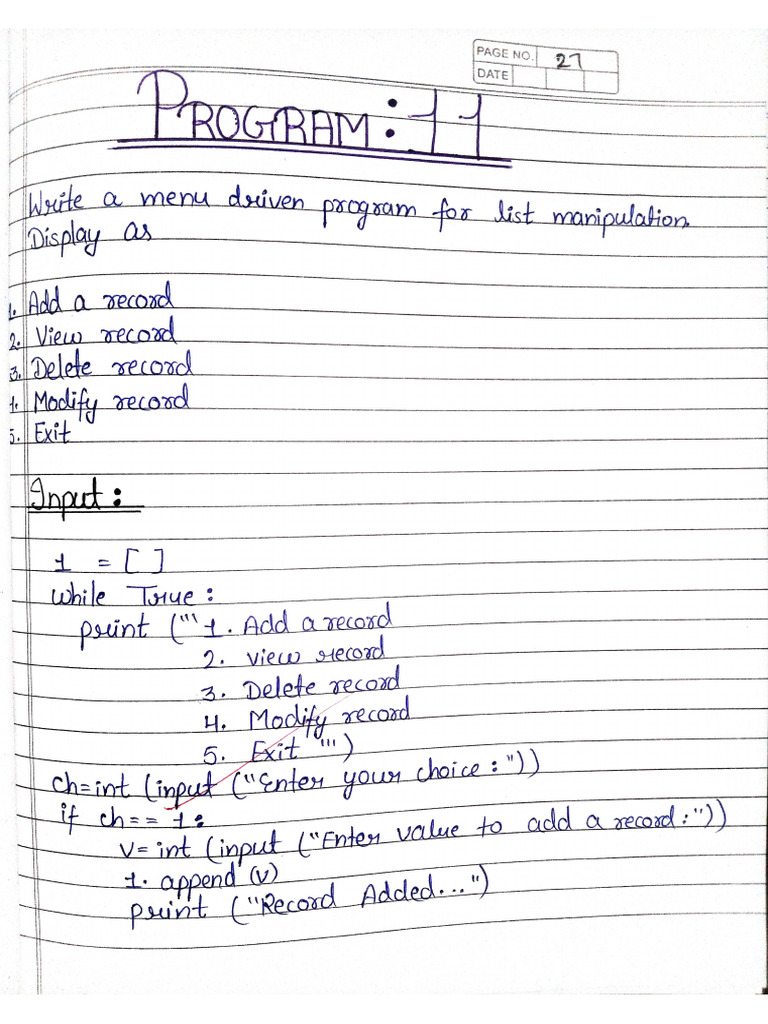 PAGE NO. 27
DATE
PROGRAM: 11
Write a menu driven program for list manipulation.
Display as
1. Add a record
2. View record
3. Delete record
4. Modify record
5. Exit
Input:
1 = [ ]
while True:
print ('''1. Add a record
2. view record
3. Delete record
4. Modify record
5. Exit ''')
ch=int (input ("Enter your choice:"))
if ch== 1:
v= int (input ("Enter value to add a record:"))
1. append (v)
print ("Record Added...")